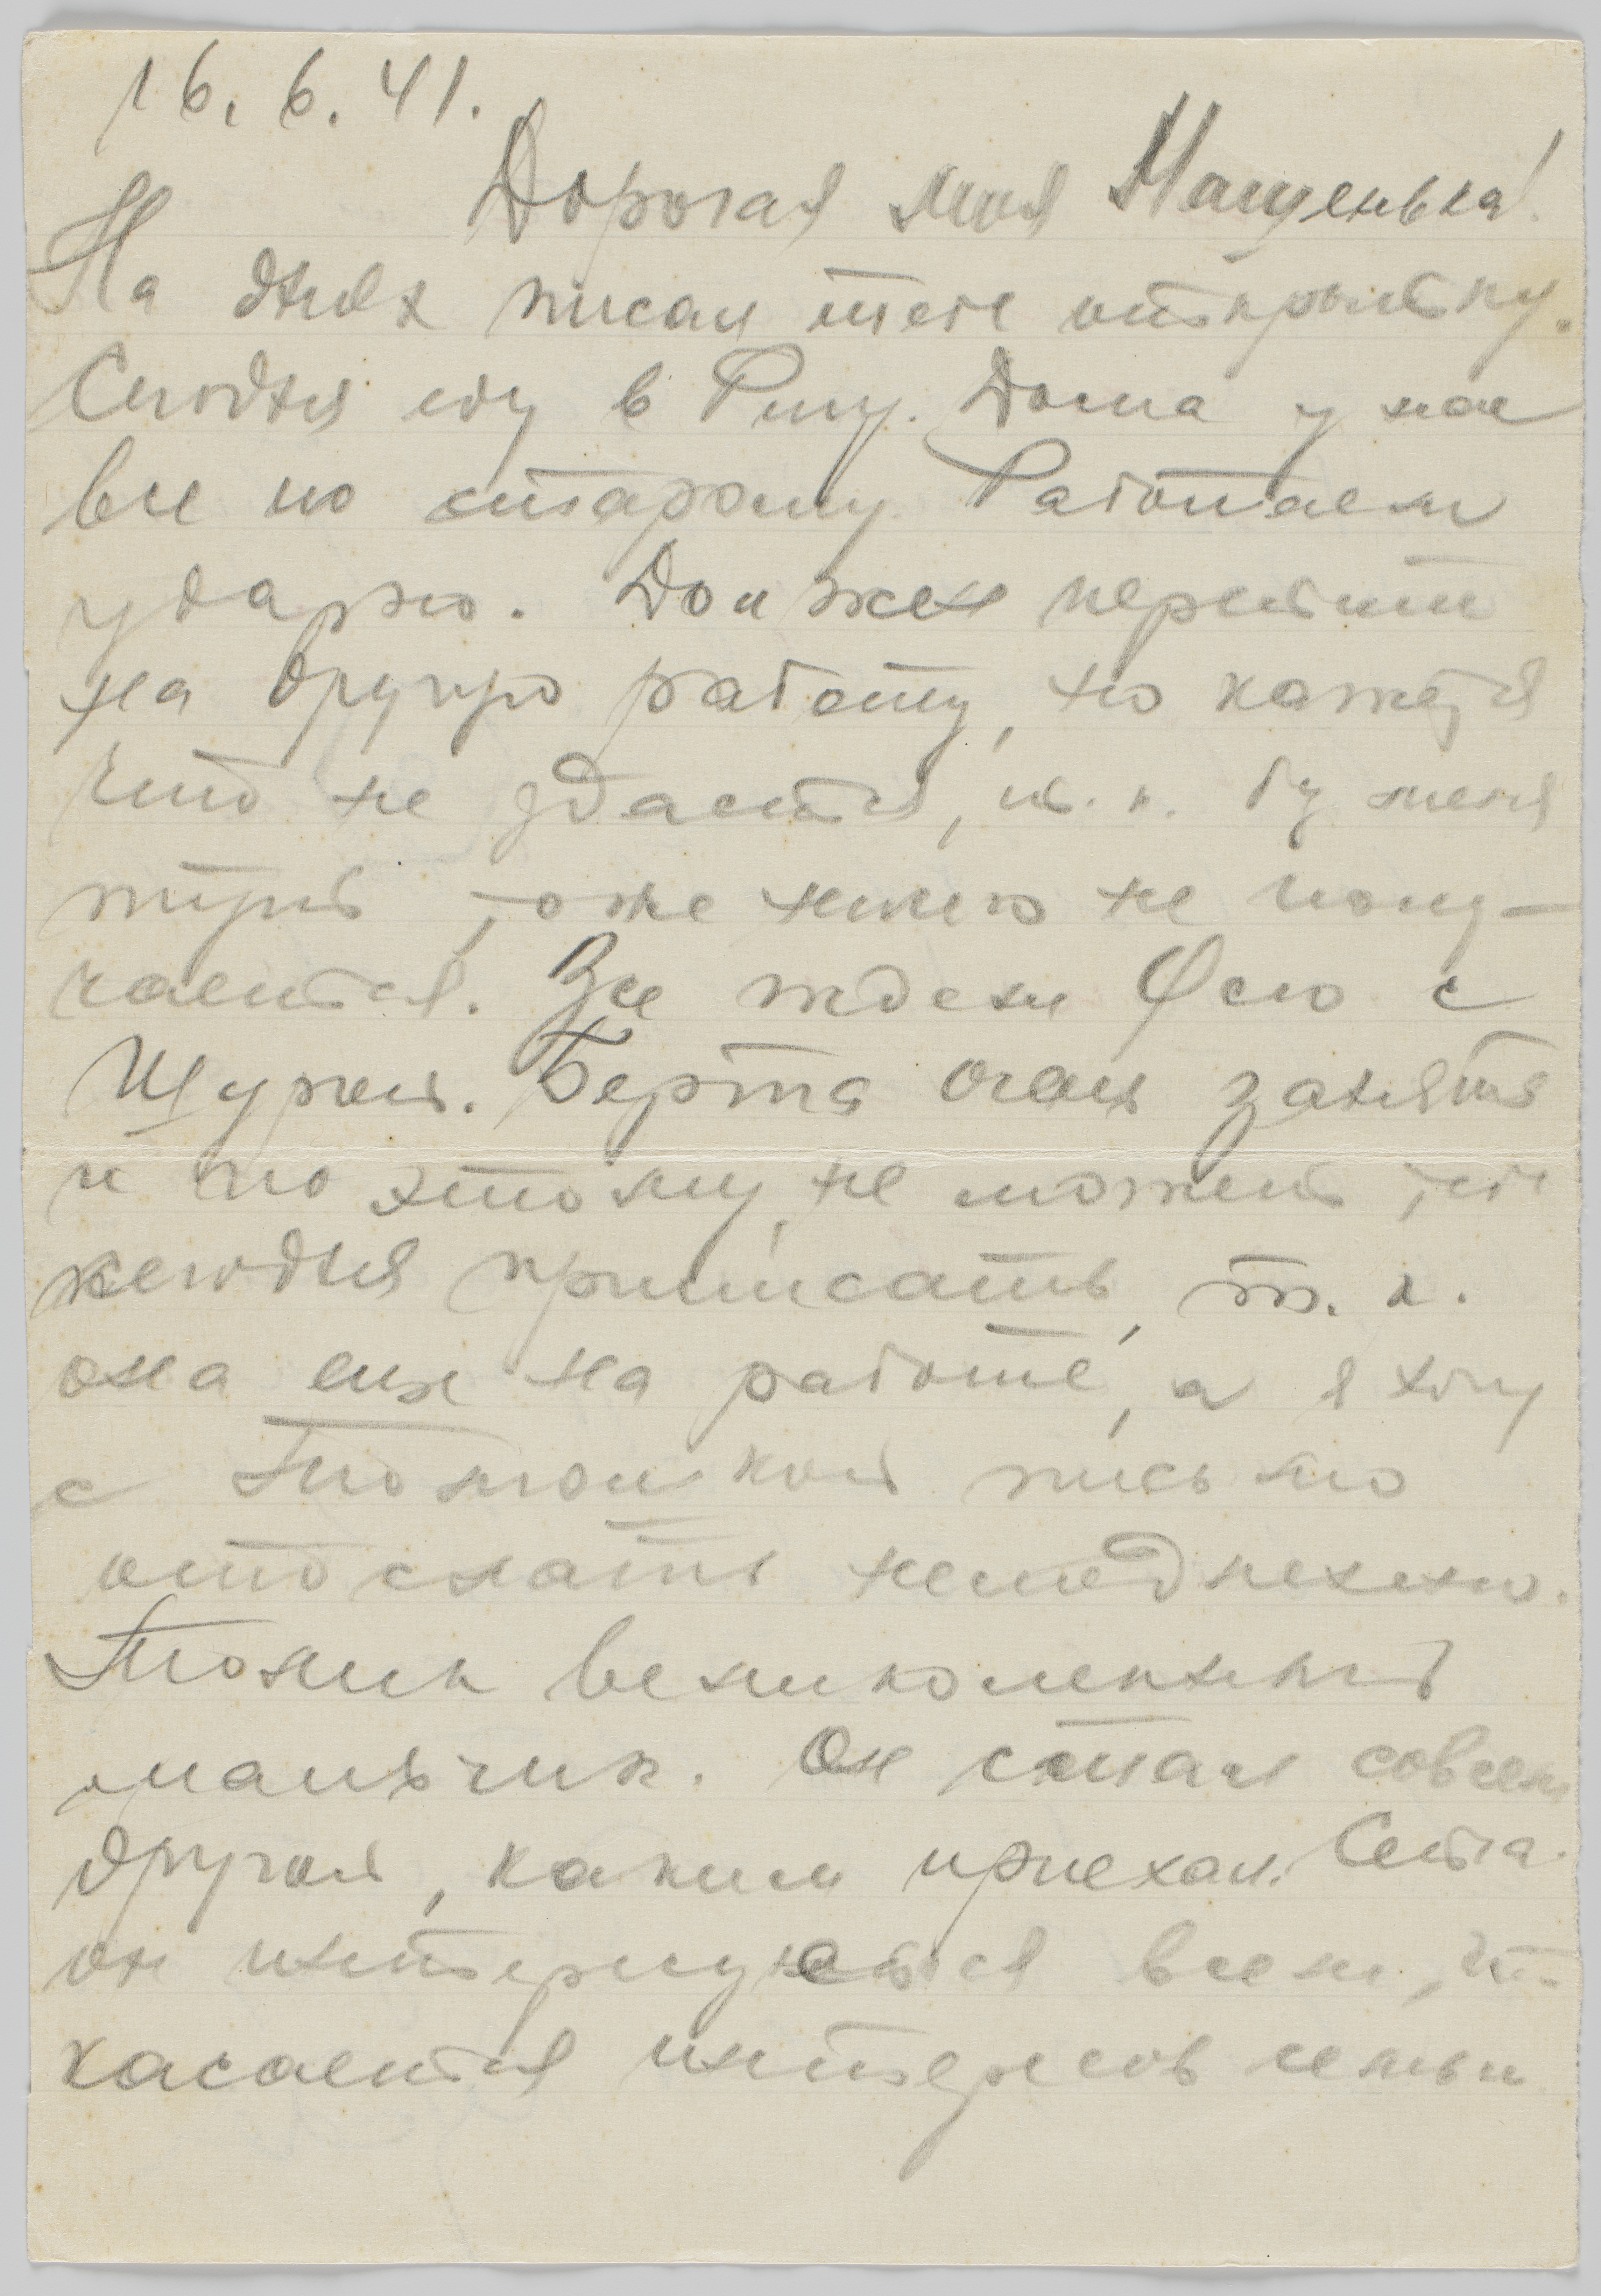 16. 6. 41.
Дорогая моя Мащенька!
На днях писал тебе открытку.
Сегодня еду в Ригу. Дома у нас
все по старому. Работаем
ударно. Должен перейти
на другую работу, но кажется
что не удастся, т. к. без меня
тут тоже ничего не полу-
чается. Все ждем Фею с
Шурой. Берта очень занята
и по этому не может тебе
сегодня приписать, т. к.
она еще на работе, а я хочу
с письмо
отослать немедленно.
великолепный
мальчик. Он стал совсем
другой, каким приехал.
он интересуется всем, что
касается интересов семьи